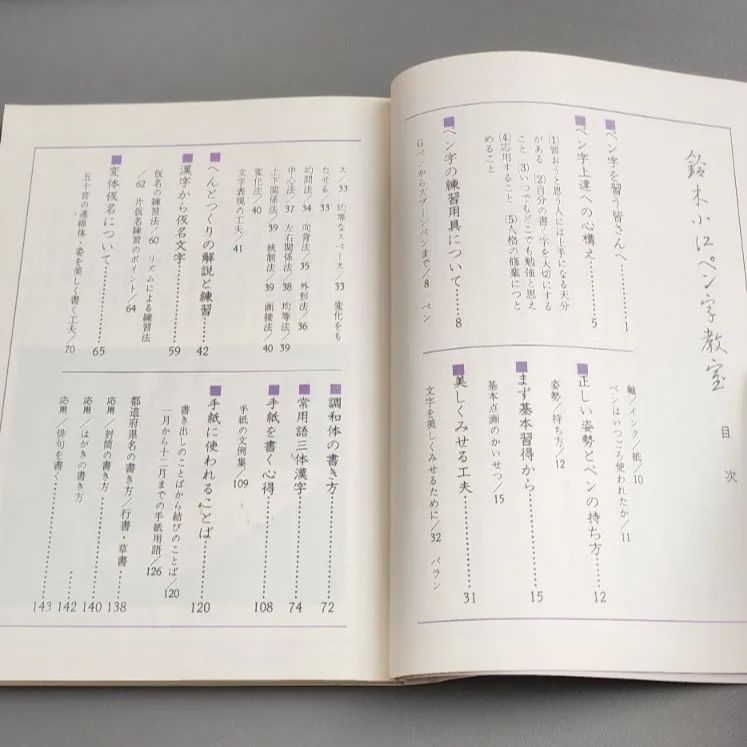 鈴木小江ペン字教室
目次
■ペン字を習う皆さんへ……1
■ペン字上達への心構え……5
(1)習おうと思う人には上手になる天分
がある (2)自分の書く字を大切にする
こと (3)いつでもどこでも勉強と思え
(4)応用すること (5)人格の修業につと
めること
■ペン字の練習用具について……8
Gペンからスプーンペンまで/8 ペン
軸/インク/紙/10
ペンはいつごろ使われたか/11
■正しい姿勢とペンの持ち方……12
姿勢/持ち方/12
■まず基本習得から……15
基本点画のかいせつ/15
■美しくみせる工夫……31
文字を美しくみせるために/32 バラン
ス/33 均等なスペース/33 変化をも
たせる/33
均間法/34 向背法/35 外形法/36
中心法/37 左右関係法/38 均等法/39
上下関係法/39 統制法/39 面接法/40
変化法/40
文字表現の工夫/41
■へんとつくりの解説と練習……42
■漢字から仮名文字……59
仮名の練習法/60 リズムによる練習法
/62 片仮名練習のポイント/64
■変体仮名について……65
五十音の連綿体・姿を美しく書く工夫/70
■調和体の書き方……72
■常用語三体漢字……74
■手紙を書く心得……108
手紙の文例集/109
■手紙に使われることば……120
書き出しのことばから結びのことば/120
一月から十二月までの手紙用語/126
都道府県名の書き方/行書・草書……138
応用/封筒の書き方……140
応用/はがきの書き方……142
応用/俳句を書く……143